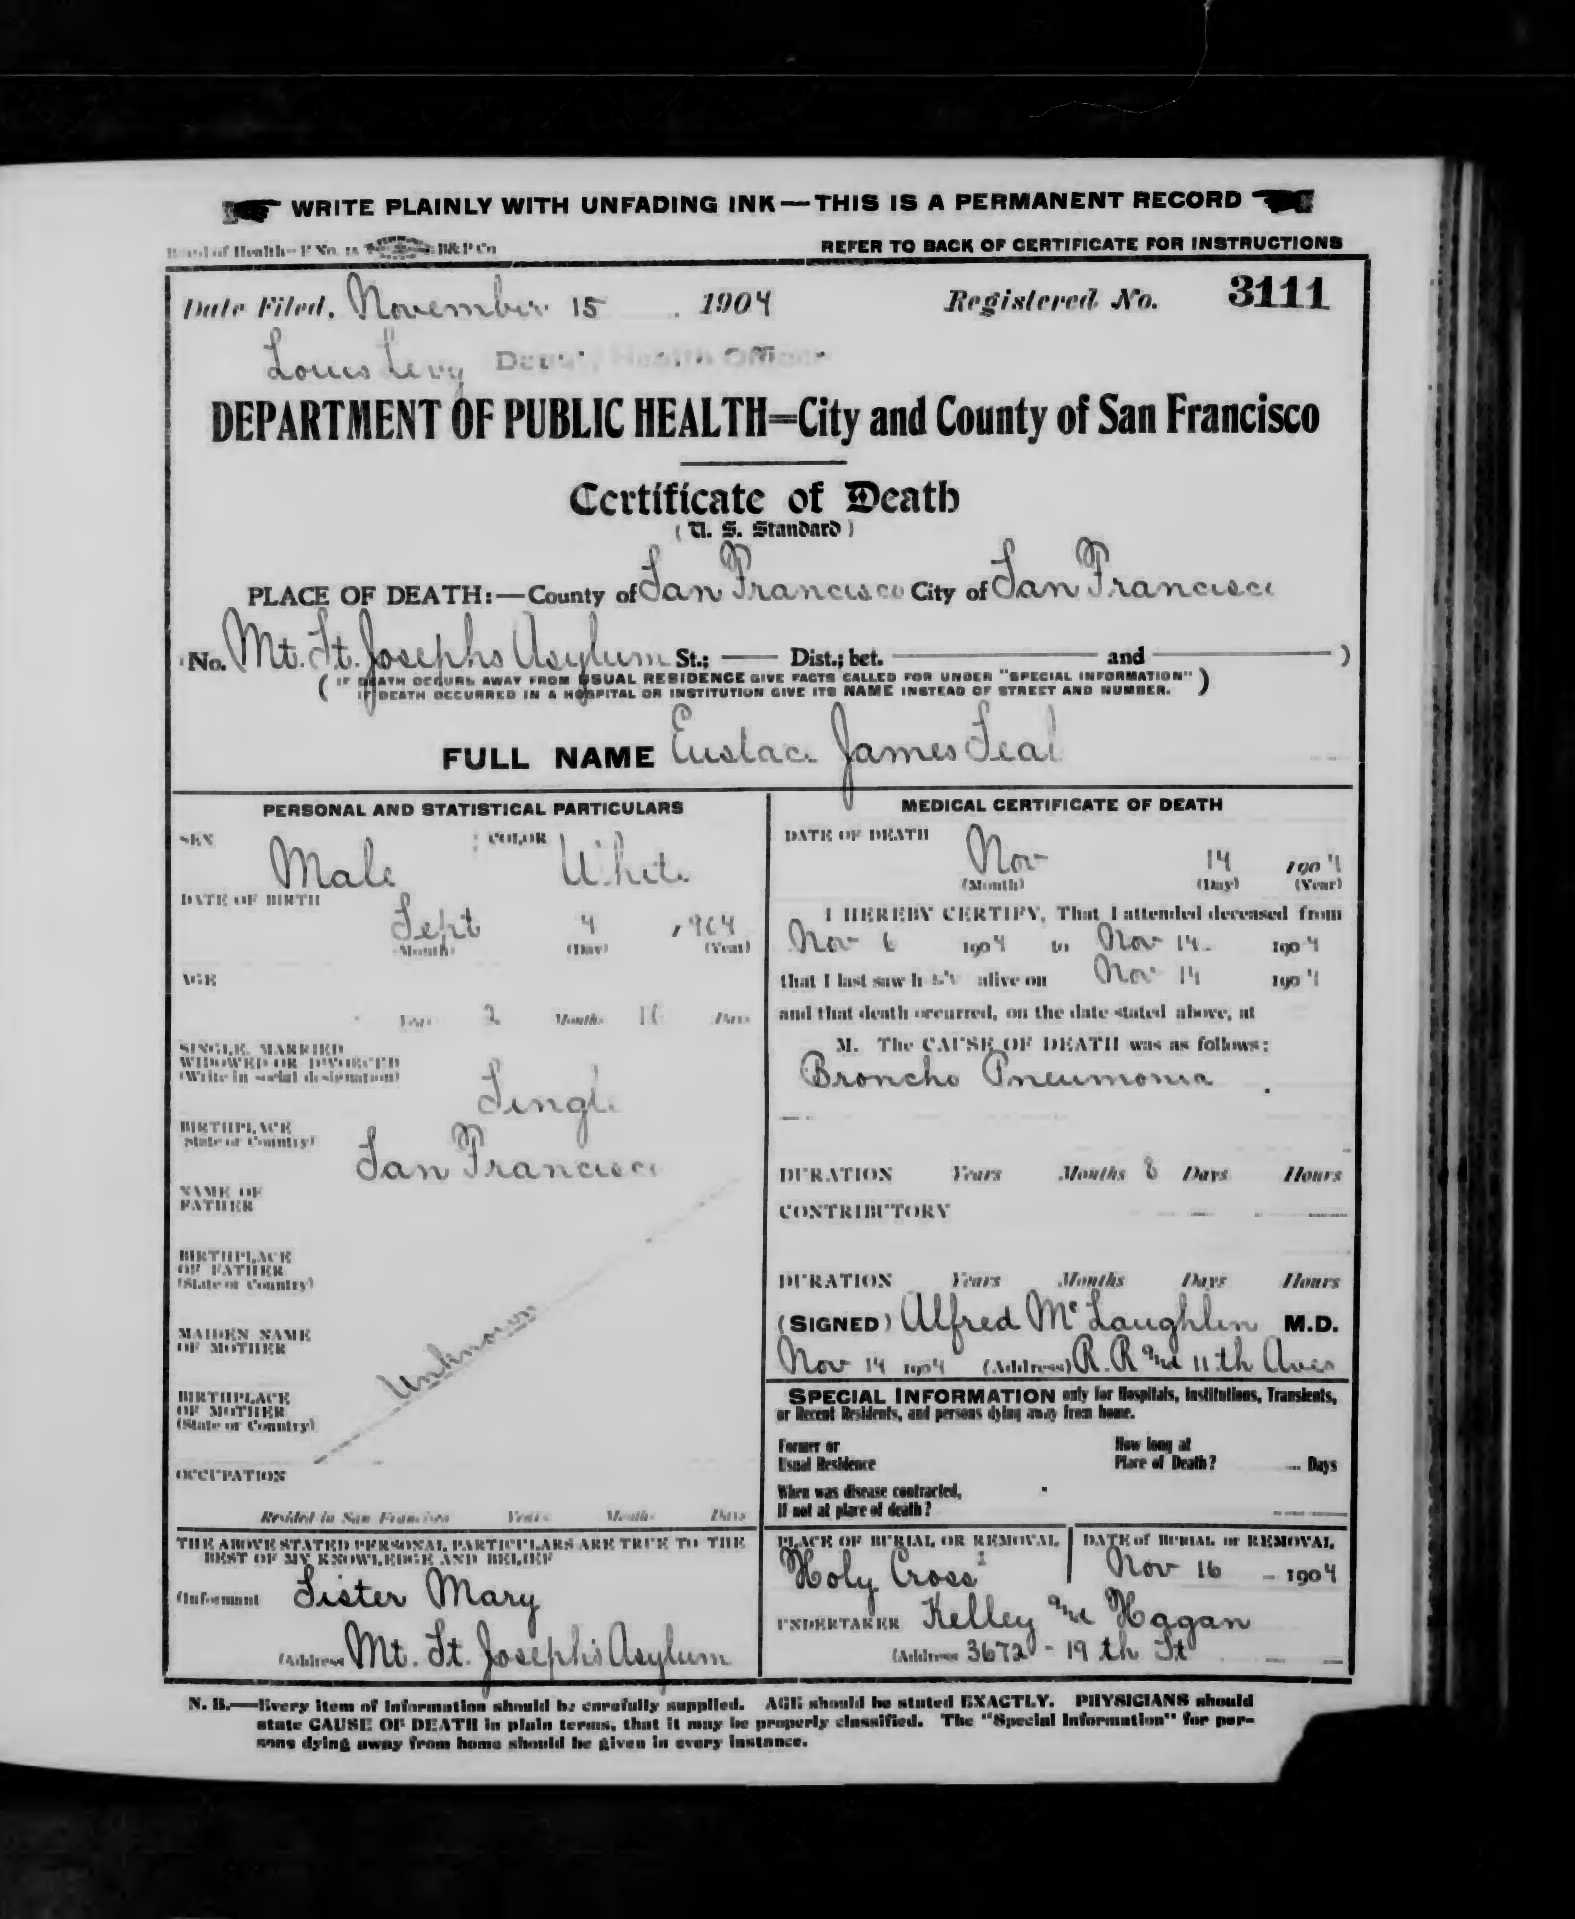 WRITE PLAINLY WITH UNFADING INK—THIS IS A PERMANENT RECORD
Board of Health—F No. 15 B&P Co
REFER TO BACK OF CERTIFICATE FOR INSTRUCTIONS
Date Filed, November 15 1904 Registered No. 3111
Louis Levy Deputy Health Officer
DEPARTMENT OF PUBLIC HEALTH=City and County of San Francisco
Certificate of Death
(U. S. Standard)
PLACE OF DEATH:—County of San Francisco City of San Francisco
No. Mt. St. Josephs Asylum St.; —— Dist.; bet. —— and —— )
( IF DEATH OCCURS AWAY FROM USUAL RESIDENCE GIVE FACTS CALLED FOR UNDER "SPECIAL INFORMATION" )
IF DEATH OCCURRED IN A HOSPITAL OR INSTITUTION GIVE ITS NAME INSTEAD OF STREET AND NUMBER.
FULL NAME Eustace James Seal
PERSONAL AND STATISTICAL PARTICULARS
SEX Male COLOR White
DATE OF BIRTH
Sept 4 1904
(Month) (Day) (Year)
AGE
Years 2 Months 10 Days
SINGLE, MARRIED
WIDOWED OR DIVORCED
(Write in social designation)
Single
BIRTHPLACE
(State or Country)
San Francisco
NAME OF
FATHER
BIRTHPLACE
OF FATHER
(State or Country)
MAIDEN NAME
OF MOTHER
Unknown
BIRTHPLACE
OF MOTHER
(State or Country)
OCCUPATION
Resided in San Francisco Years Months Days
THE ABOVE STATED PERSONAL PARTICULARS ARE TRUE TO THE
BEST OF MY KNOWLEDGE AND BELIEF
(Informant Sister Mary
(Address Mt. St. Joseph's Asylum
MEDICAL CERTIFICATE OF DEATH
DATE OF DEATH
Nov 14 1904
(Month) (Day) (Year)
I HEREBY CERTIFY, That I attended deceased from
Nov 6 1904 to Nov 14 1904
that I last saw h alive on Nov 14 1904
and that death occurred, on the date stated above, at
M. The CAUSE OF DEATH was as follows:
Broncho Pneumonia
DURATION Years Months 8 Days Hours
CONTRIBUTORY
DURATION Years Months Days Hours
(SIGNED) Alfred McLaughlin M.D.
Nov 14 1904 (Address) R. R and 11th Aves
SPECIAL INFORMATION only for Hospitals, Institutions, Transients,
or Recent Residents, and persons dying away from home.
Former or
Usual Residence
How long at
Place of Death? Days
When was disease contracted,
If not at place of death?
PLACE OF BURIAL OR REMOVAL
Holy Cross
DATE of BURIAL or REMOVAL
Nov 16 1904
UNDERTAKER Kelley and Hagan
(Address 3672 - 19th St
N. B.—Every item of information should be carefully supplied. AGE should be stated EXACTLY. PHYSICIANS should
state CAUSE OF DEATH in plain terms, that it may be properly classified. The "Special Information" for per-
sons dying away from home should be given in every instance.